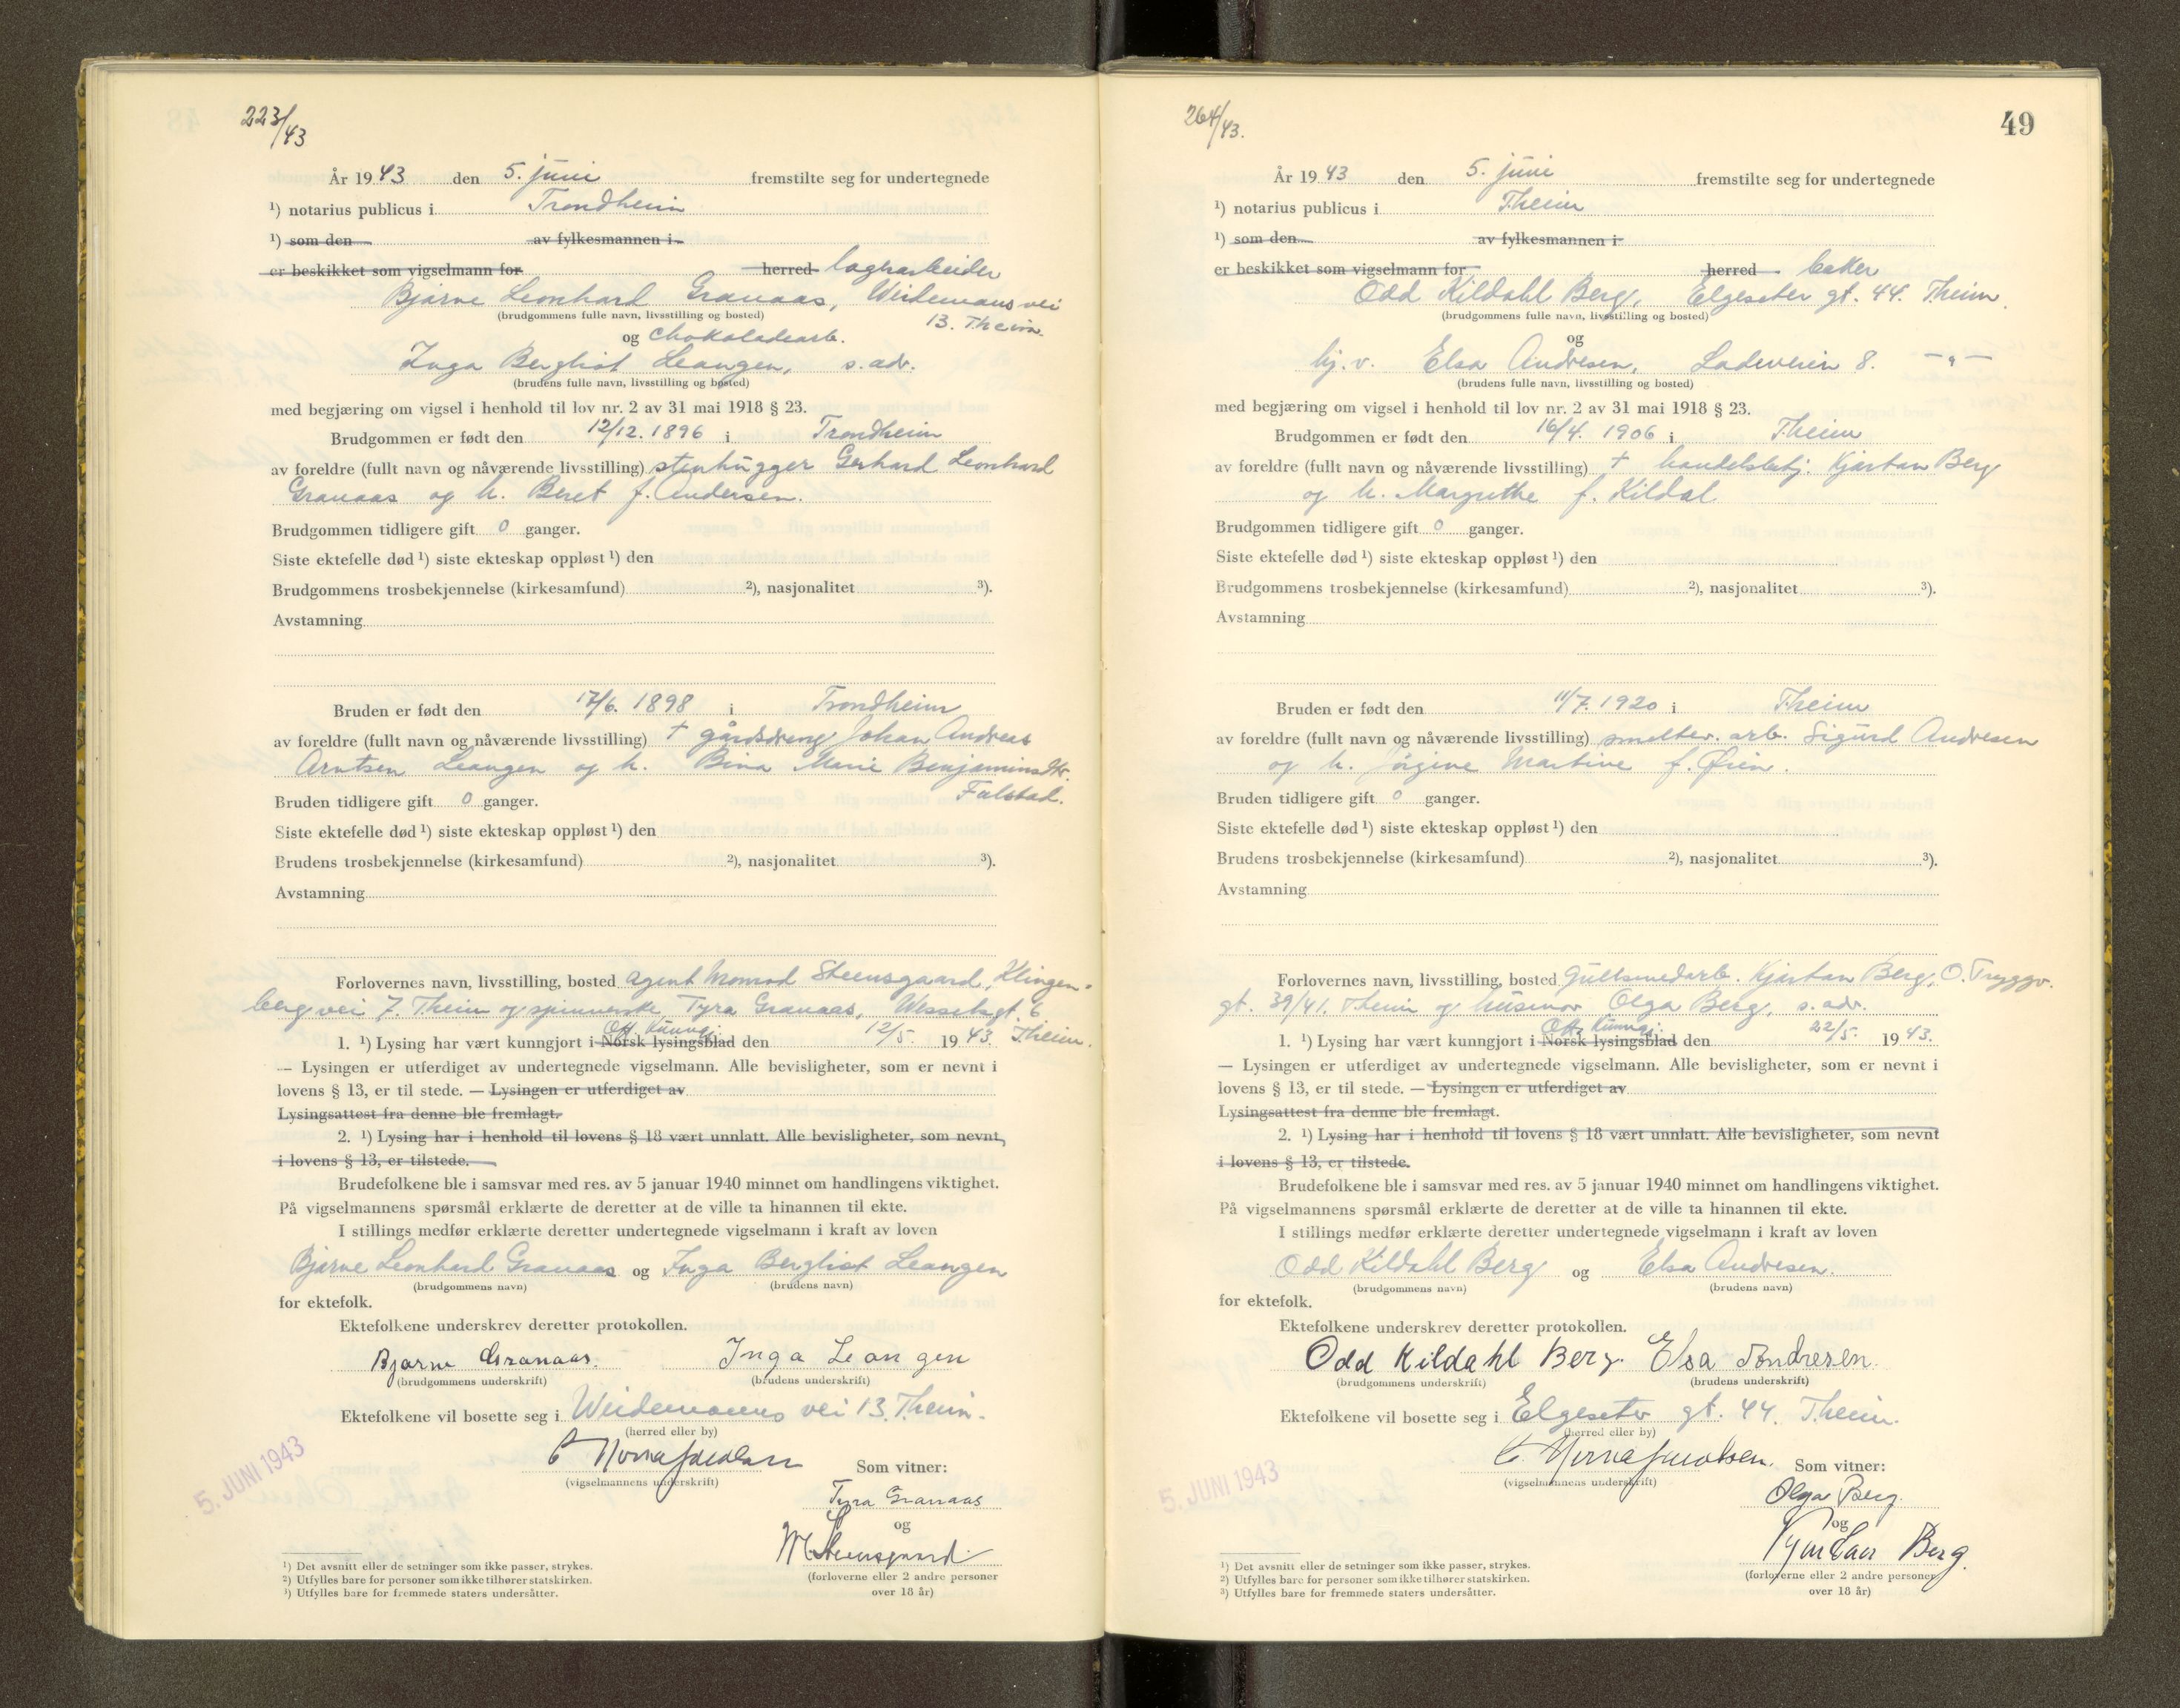 223/43
År 1943 den 5. juni fremstilte seg for undertegnede
¹) notarius publicus i Trondheim
¹) som den av fylkesmannen i
er beskikket som vigselmann for herred lagerarbeider
Bjarne Leonhard Granaas, Weidemans vei
(brudgommens fulle navn, livsstilling og bosted) 13. Theim
og chokoladearb.
Inga Bergliot Leangen, s. adr.
(brudens fulle navn, livsstilling og bosted)
med begjæring om vigsel i henhold til lov nr. 2 av 31 mai 1918 § 23.
Brudgommen er født den 12/12. 1896 i Trondheim
av foreldre (fullt navn og nåværende livsstilling) stenhugger Gerhard Leonhard
Granaas og h. Beret f. Andersen.
Brudgommen tidligere gift 0 ganger.
Siste ektefelle død ¹) siste ekteskap oppløst ¹) den
Brudgommens trosbekjennelse (kirkesamfund) ²), nasjonalitet ³).
Avstamning
Bruden er født den 17/6. 1898 i Trondheim
av foreldre (fullt navn og nåværende livsstilling) † gårdsdreng Johan Andreas
Arntsen Leangen og h. Bina Marie Benjaminsdtr.
Falstad.
Bruden tidligere gift 0 ganger.
Siste ektefelle død ¹) siste ekteskap oppløst ¹) den
Brudens trosbekjennelse (kirkesamfund) ²), nasjonalitet ³).
Avstamning
Forlovernes navn, livsstilling, bosted agent Monrad Steensgaard, Klingen-
berg vei 7. Theim og spinnerske Tyra Granaas, Wesselsgt. 6
Off. Kunngj.
1. ¹) Lysing har vært kunngjort i Norsk lysingsblad den 12/5. 1943. Theim.
— Lysingen er utferdiget av undertegnede vigselmann. Alle bevisligheter, som er nevnt i
lovens § 13, er til stede. — Lysingen er utferdiget av
Lysingsattest fra denne ble fremlagt.
2. ¹) Lysing har i henhold til lovens § 18 vært unnlatt. Alle bevisligheter, som nevnt
i lovens § 13, er tilstede.
Brudefolkene ble i samsvar med res. av 5 januar 1940 minnet om handlingens viktighet.
På vigselmannens spørsmål erklærte de deretter at de ville ta hinannen til ekte.
I stillings medfør erklærte deretter undertegnede vigselmann i kraft av loven
Bjarne Leonhard Granaas og Inga Bergliot Leangen
(brudgommens navn) (brudens navn)
for ektefolk.
Ektefolkene underskrev deretter protokollen.
Bjarne Granaas. Inga Leangen
(brudgommens underskrift) (brudens underskrift)
Ektefolkene vil bosette seg i Weidemanns vei 13. Theim.
(herred eller by)
(vigselmannens underskrift) Som vitner:
5. JUNI 1943
Tyra Granaas
og
M Steensgaard
(forloverne eller 2 andre personer
over 18 år)
¹) Det avsnitt eller de setninger som ikke passer, strykes.
²) Utfylles bare for personer som ikke tilhører statskirken.
³) Utfylles bare for fremmede staters undersåtter.
264/43.
49
År 1943 den 5. juni fremstilte seg for undertegnede
¹) notarius publicus i Theim
¹) som den av fylkesmannen i
er beskikket som vigselmann for herred baker
Odd Kildahl Berg, Elgeseter gt. 44. Theim.
(brudgommens fulle navn, livsstilling og bosted)
og
hj. v. Elsa Andresen, Ladeveien 8. —"—
(brudens fulle navn, livsstilling og bosted)
med begjæring om vigsel i henhold til lov nr. 2 av 31 mai 1918 § 23.
Brudgommen er født den 16/4. 1906 i Theim
av foreldre (fullt navn og nåværende livsstilling) † handelsbetj. Kjartan Berg
og h. Margrethe f. Kildal
Brudgommen tidligere gift 0 ganger.
Siste ektefelle død ¹) siste ekteskap oppløst ¹) den
Brudgommens trosbekjennelse (kirkesamfund) ²), nasjonalitet ³).
Avstamning
Bruden er født den 11/7. 1920 i Theim
av foreldre (fullt navn og nåværende livsstilling) smeltev. arb. Sigurd Andresen
og h. Jørgine Martine f. Øien.
Bruden tidligere gift 0 ganger.
Siste ektefelle død ¹) siste ekteskap oppløst ¹) den
Brudens trosbekjennelse (kirkesamfund) ²), nasjonalitet ³).
Avstamning
Forlovernes navn, livsstilling, bosted gullsmedarb. Kjartan Berg, O. Tryggv.
gt. 39/41. Theim og husmor Olga Berg, s. adr.
Off. Kunngj.
1. ¹) Lysing har vært kunngjort i Norsk lysingsblad den 22/5. 1943.
— Lysingen er utferdiget av undertegnede vigselmann. Alle bevisligheter, som er nevnt i
lovens § 13, er til stede. — Lysingen er utferdiget av
Lysingsattest fra denne ble fremlagt.
2. ¹) Lysing har i henhold til lovens § 18 vært unnlatt. Alle bevisligheter, som nevnt
i lovens § 13, er tilstede.
Brudefolkene ble i samsvar med res. av 5 januar 1940 minnet om handlingens viktighet.
På vigselmannens spørsmål erklærte de deretter at de ville ta hinannen til ekte.
I stillings medfør erklærte deretter undertegnede vigselmann i kraft av loven
Odd Kildahl Berg og Elsa Andresen.
(brudgommens navn) (brudens navn)
for ektefolk.
Ektefolkene underskrev deretter protokollen.
Odd Kildahl Berg. Elsa Andresen.
(brudgommens underskrift) (brudens underskrift)
Ektefolkene vil bosette seg i Elgeseter gt. 44. Theim.
(herred eller by)
(vigselmannens underskrift) Som vitner:
5. JUNI 1943
Olga Berg.
og
Kjartan Berg.
(forloverne eller 2 andre personer
over 18 år)
¹) Det avsnitt eller de setninger som ikke passer, strykes.
²) Utfylles bare for personer som ikke tilhører statskirken.
³) Utfylles bare for fremmede staters undersåtter.